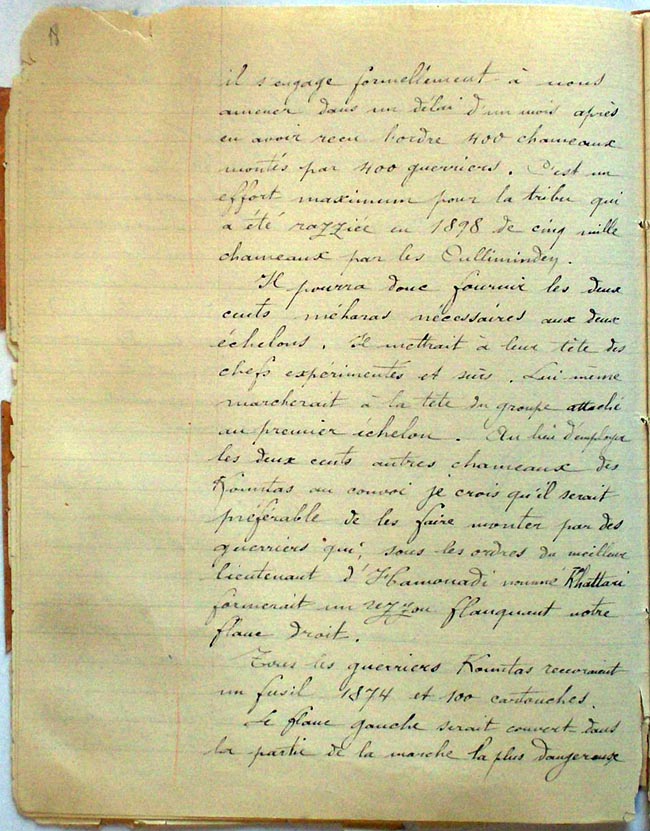 il s'engage formellement à nous
amener dans un délai d'un mois après
en avoir reçu l'ordre 400 chameaux
montés par 400 guerriers. C'est un
effort maximum pour la tribu qui
a été razziée en 1898 de cinq mille
chameaux par les Oullimindey.
Il pourra donc fournir les deux
cents méharas nécessaires aux deux
échelons. Il mettrait à leur tête des
chefs expérimentés et sûrs. Lui même
marcherait à la tête du groupe attaché
au premier échelon. Au lieu d'employer
les deux cents autres chameaux des
Kountas au convoi je crois qu'il serait
préférable de les faire monter par des
guerriers qui, sous les ordres du meilleur
lieutenant d'Hamonadi nommé Khattari
formerait un rezzou flanquant notre
flanc droit.
Tous les guerriers Kountas recevraient
un fusil 1874 et 100 cartouches.
Le flanc gauche serait couvert dans
la partie de la marche la plus dangereuse